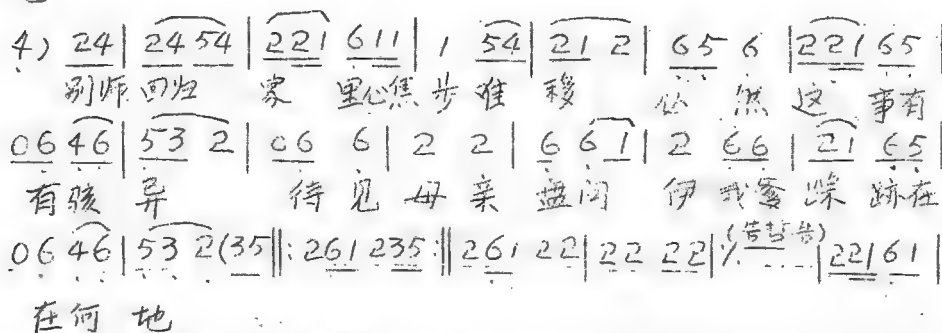 4) 24 | 24 54 | 221 611 | 1 54 | 21 2 | 65 6 | 221 65 |
别师 回归 家 里心焦 步 难 移 必 然 这 事有
06 46 | 53 2 | 06 6 | 2 2 | 6 61 | 2 66 | 21 65 |
有骇 异 待 见 母 亲 盘问 伊 我爹 踪 跡在
06 46 | 53 2 (35 ||: 261 235 :|| 261 22 | 22 22 | | 221 61 |
在何 地